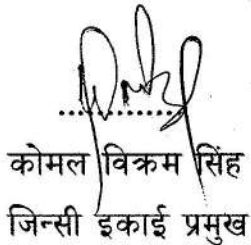 कोमल विक्रम सिंह
जिन्सी इकाई प्रमुख